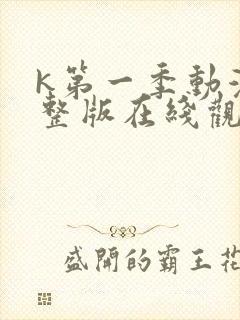 K第一季動
整版在綫觀
盛開的霸王花